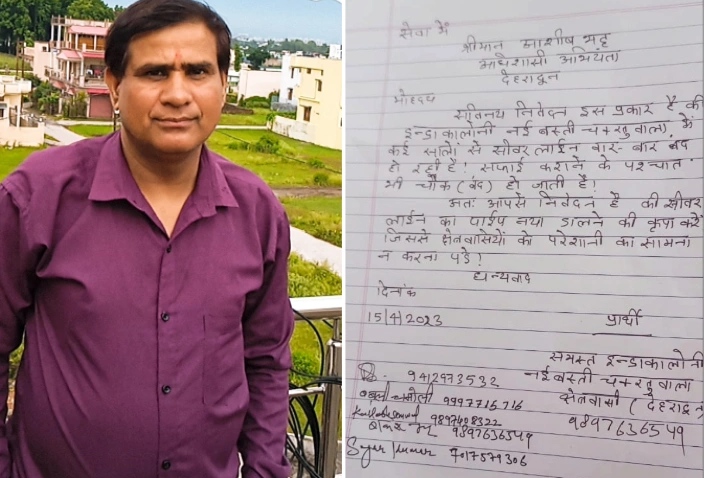 सेवा में
श्रीमान आशीष भट्ट
अधिशासी अभियंता
देहरादून
मोहदय
सविनय निवेदन इस प्रकार है की
इन्डाकालोनी नई बस्ती च+रवुवाला, में
कई सालों से सीवर लाईन बार-बार बंद
हो रही है! सफाई कराने के पश्चात
भी चौक (बंद) हो जाती है!
अतः आपसे निवेदन है की सीवर
लाईन का पाईप नया डालने की कृपा करें
जिससे क्षेतवासियों को परेशानी का सामना
न करना पडे!
धन्यवाद
दिनांक
15/4/2023
प्रार्थी
समस्त इन्डाकालोनी
नई बस्ती च+रवुवाला
क्षेतवासी (देहरादून
9897636549
9412973532
9997715716
9897408322
9897636549
Kumar 7017579306